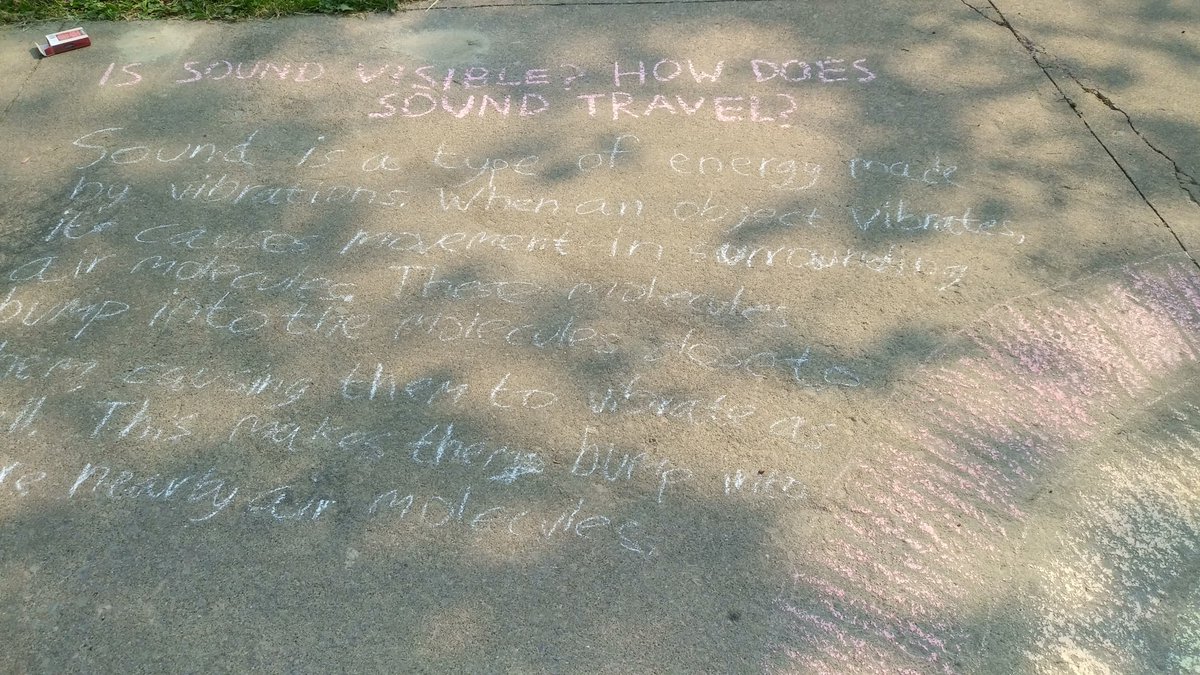 IS SOUND VISIBLE? HOW DOES
SOUND TRAVEL?
Sound is a type of energy made
by vibrations. When an object vibrates,
it causes movement in surrounding
air molecules. These molecules
bump into the molecules close to
hem causing them to vibrate as
ll. This makes them bump into
re nearby air molecules.